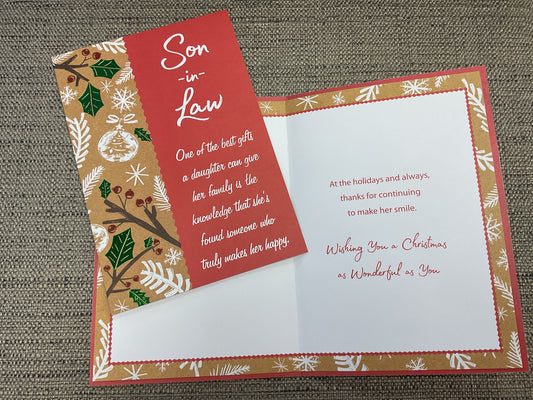 Son
-in-
Law
One of the best gifts
a daughter can give
her family is the
knowledge that she's
found someone who
truly makes her happy.
At the holidays and always,
thanks for continuing
to make her smile.
Wishing You a Christmas
as Wonderful as You